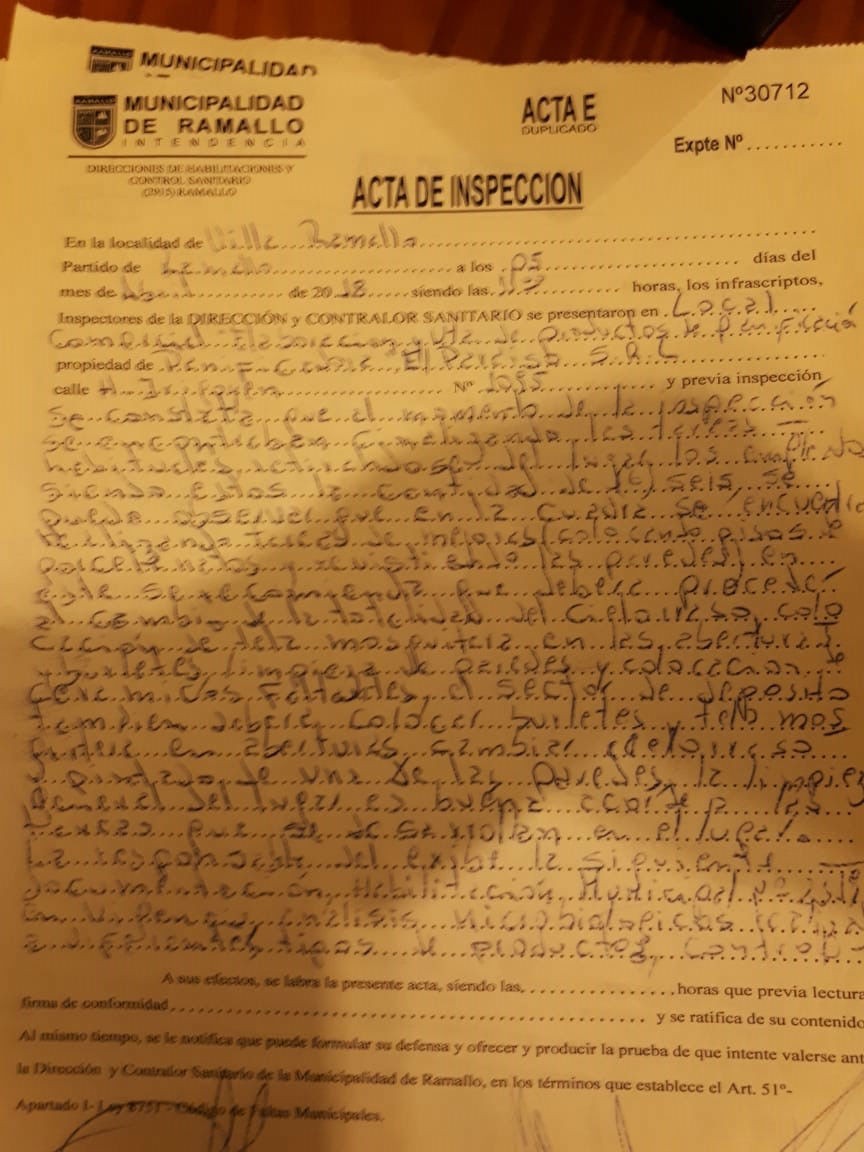 RAMALLO
MUNICIPALIDAD
RAMALLO
MUNICIPALIDAD
DE RAMALLO
INTENDENCIA
DIRECCIONES DE HABILITACIONES Y
CONTROL SANITARIO
(2915) RAMALLO
ACTA E
DUPLICADO
Nº30712
Expte Nº...........
ACTA DE INSPECCION
En la localidad de Villa Ramallo
Partido de Ramallo a los 05 días del
mes de de 2018 siendo las horas, los infrascriptos,
Inspectores de la DIRECCIÓN y CONTRALOR SANITARIO se presentaron en Local
Comercial Elaboracion y Vta de productos de Panificación
propiedad de S.R.L
calle H. Irigoyen Nº y previa inspección
Se constata que al momento de la inspección
se encontraban finalizando las tareas
habituales del lugar los empleados
siendo estos la cantidad de (6) seis, se
puede observar que en la cuadra se encuentra
realizando tareas de mejoras (colocando pisos de
porcelanatos y las paredes) en
este se recomienda que deberá proceder
al cambio de la totalidad del cieloraso, colo
cación de tela mosquitera en las aberturas
y burletes, limpieza de paredes y colocacion de
ceramicas faltantes, el sector de deposito
tambien deberá colocar burletes y tela mos
quitera en aberturas, cambiar cieloraso
y pintado de una de las paredes, la limpieza
General del lugar es buena acorde a las
tareas que se desarrollan en el lugar.
La responsable del exibe la siguiente
documentación, Habilitación Municipal
en vigencia, análisis microbiologicos
a diferentes tipos de productos, control
A sus efectos, se labra la presente acta, siendo las,..............horas que previa lectura
firma de conformidad.......................................... y se ratifica de su contenido
Al mismo tiempo, se le notifica que puede formular su defensa y ofrecer y producir la prueba de que intente valerse ant
la Dirección y Contralor Sanitario de la Municipalidad de Ramallo, en los términos que establece el Art. 51º-
Apartado I- Ley 8751 - Código de Faltas Municipales.